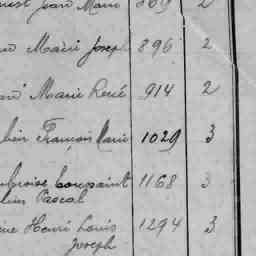 Jean Marie 869 2
Marie Joseph 896 2
Marie René 914 2
François Marie 1029 3
Ambroise Toussaint 1168 3
Pascal
Henri Louis 1294 3
Joseph